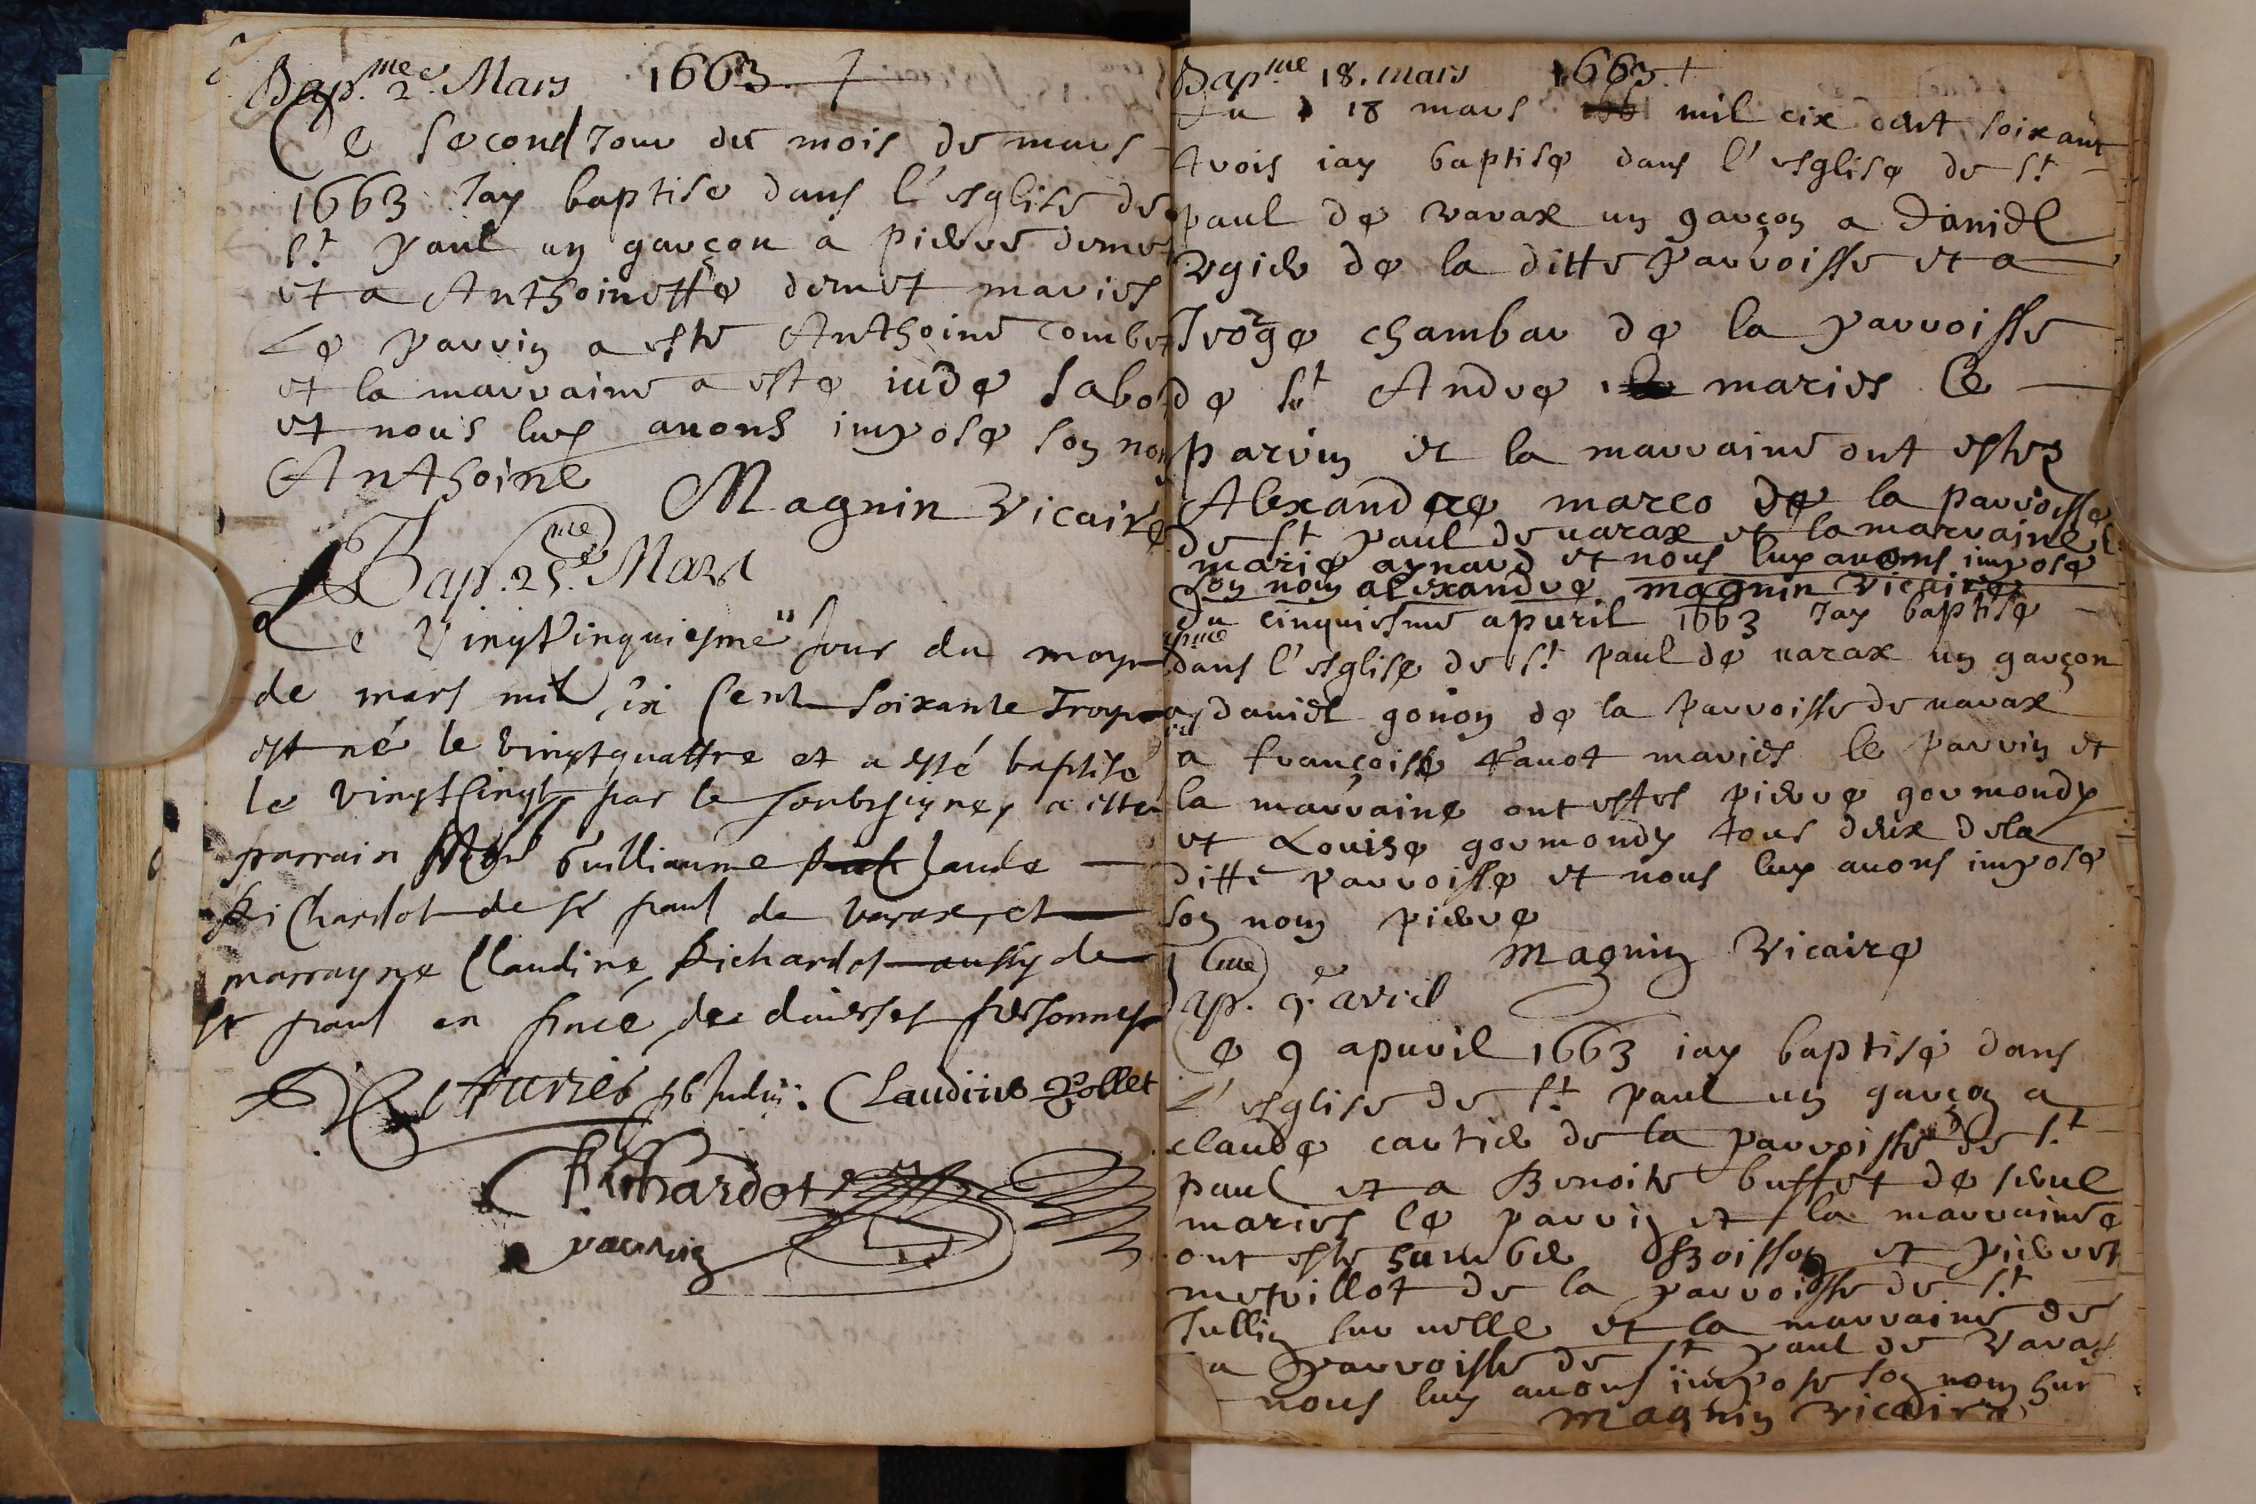 Bap.me 2e Mars 1663
Ce second jour du mois de mars
1663 Jay baptise dans l'esglise de
St paul un garçon a pierre
et a Anthoinette maries
Le parrin a este Anthoine
et la marraine a este
et nous luy avons impose son nom
Anthoine Magnin vicaire
Bap.me 25.e Mars
Le vingtcinquiesme Jour du moys
de mars mil six Cent Soixante Troys
est né le vingtquattre et a esté baptisé
le vingtcinqt par le soubsigney a esté
parrain Guilliaume Claude
Richardot de St paul de varax, et
marrayne Claudine Richardot aussy de
St paul en pnce de diverses personnes
Claudius Vollet
Richardot
parrin
Bapme 18. mars 1663
Du 18 mars mil six cent soixant
trois iay baptise dans l'esglise de St
paul de varax un garçon a Daniel
de la ditte parroisse et a
chambar de la parroisse
de St Andre maries le
parrin et la marraine ont estez
Alexandre marco de la parroisse
de St paul de varax et la marraine
marie aynard et nous luy avons impose
son nom alexandre magnin vicaire
Du cinquiesme apvril 1663 Jay baptise
dans l'esglise de St paul de varax un garçon
a daniel gonon de la parroisse de varax
a françoise maries le parrin et
la marraine ont estes pierre gormondy
et Louise gormondy tous deux dela
ditte parroisse et nous luy avons impose
son nom pierre
magnin vicaire
Bap.me 9.e avril
Le 9 apvril 1663 iay baptisé dans
L'esglise de St paul un garçon a
claude cartier de la parroisse de St
paul et a Benoite buffet de
maries le parrin et la marraine
ont este humber Boisson et
de la parroisse de St
Jullin sur velle et la marraine de
la parroisse de St paul de Varax
nous luy avons impose son nom hum
magnin vicaire